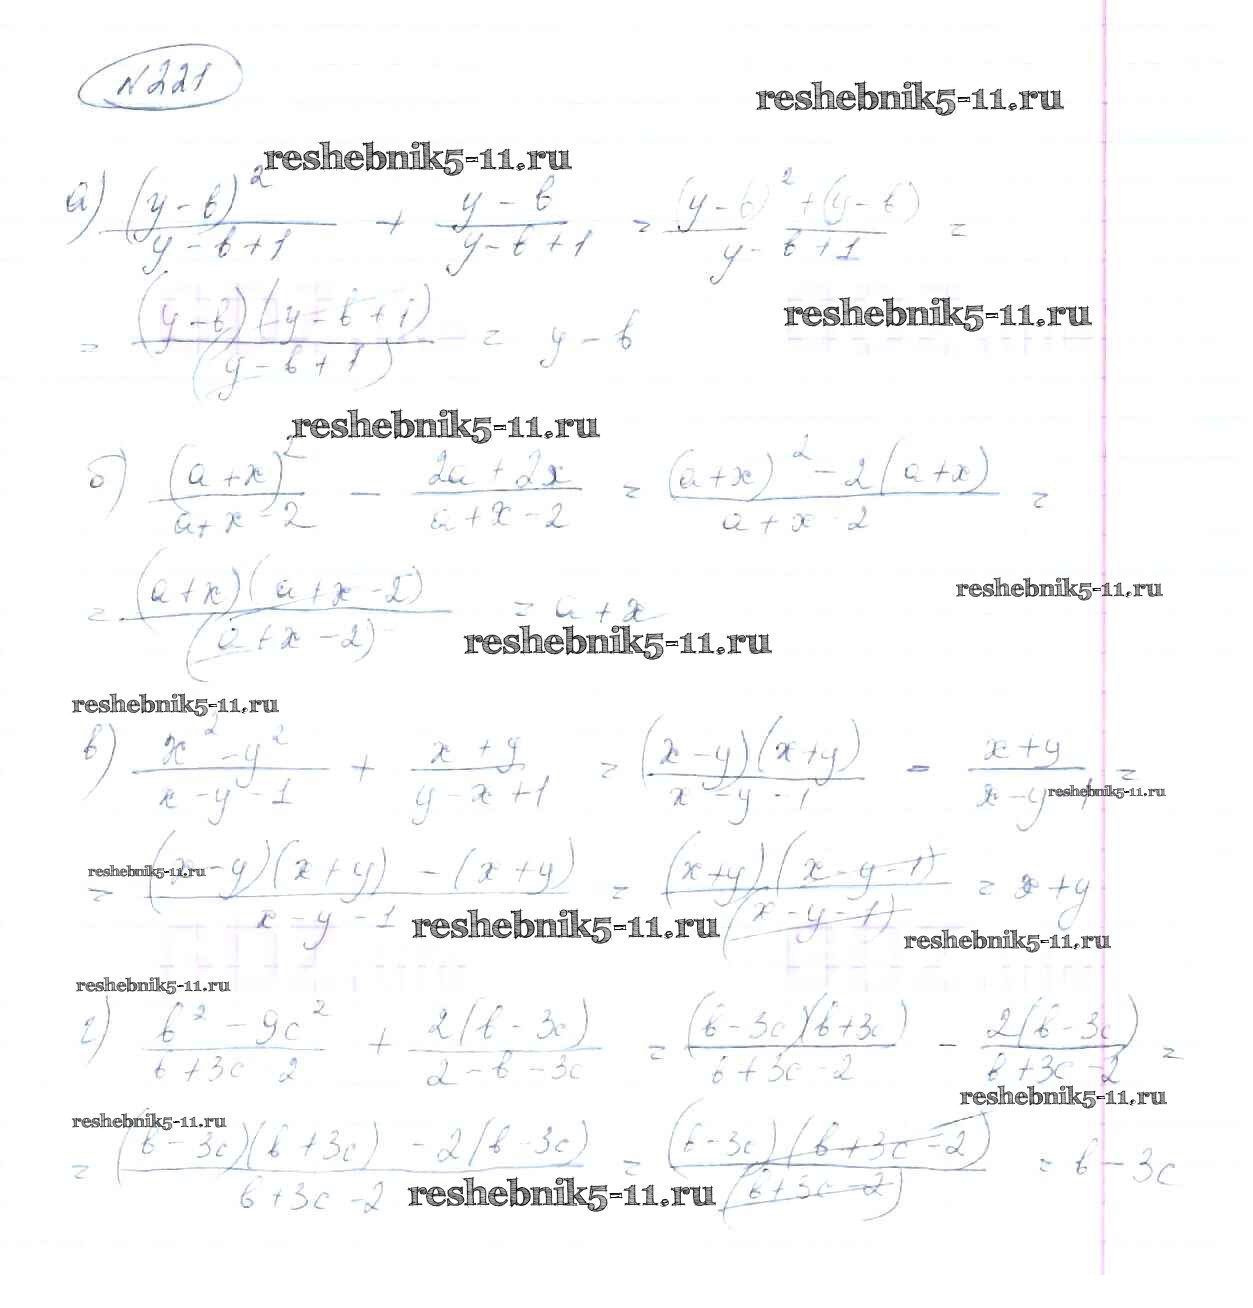 №221
reshebnik5-11.ru
reshebnik5-11.ru
а) (y-b)²/(y-b+1) + (y-b)/(y-b+1) = ((y-b)²+(y-b))/(y-b+1) =
= (y-b)(y-b+1)/(y-b+1) = y-b
reshebnik5-11.ru
reshebnik5-11.ru
б) (a+x)²/(a+x-2) - (2a+2x)/(a+x-2) = ((a+x)²-2(a+x))/(a+x-2) =
= (a+x)(a+x-2)/(a+x-2) = a+x
reshebnik5-11.ru
reshebnik5-11.ru
reshebnik5-11.ru
в) (x²-y²)/(x-y-1) + (x+y)/(y-x+1) = (x-y)(x+y)/(x-y-1) - (x+y)/(x-y-1) =
reshebnik5-11.ru
reshebnik5-11.ru
= ((x-y)(x+y)-(x+y))/(x-y-1) = (x+y)(x-y-1)/(x-y-1) = x+y
reshebnik5-11.ru
reshebnik5-11.ru
reshebnik5-11.ru
г) (b²-9c²)/(b+3c-2) + 2(b-3c)/(2-b-3c) = (b-3c)(b+3c)/(b+3c-2) - 2(b-3c)/(b+3c-2) =
reshebnik5-11.ru
reshebnik5-11.ru
= ((b-3c)(b+3c)-2(b-3c))/(b+3c-2) = (b-3c)(b+3c-2)/(b+3c-2) = b-3c
reshebnik5-11.ru